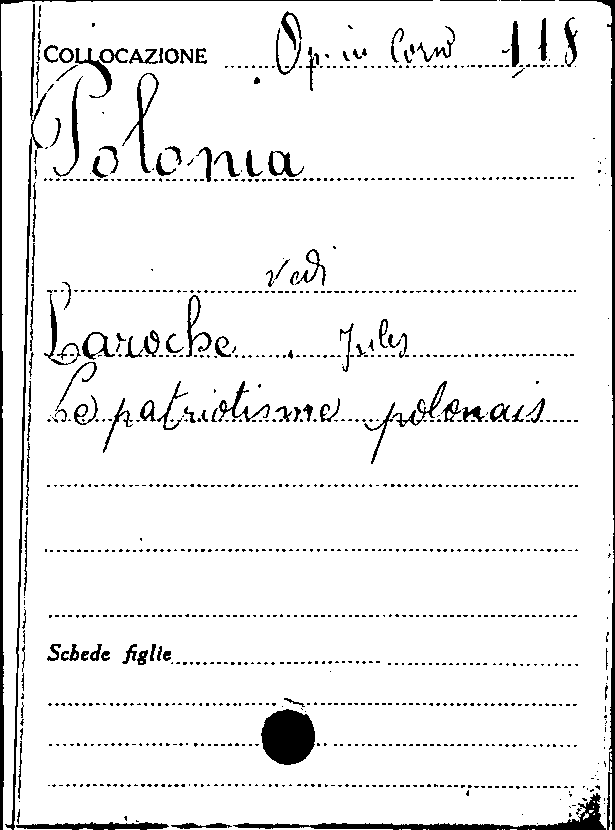 COLLOCAZIONE Op. in Corso 118
Polonia
vedi
Laroche . Jules
Le patriotisme polonais
Schede figlie